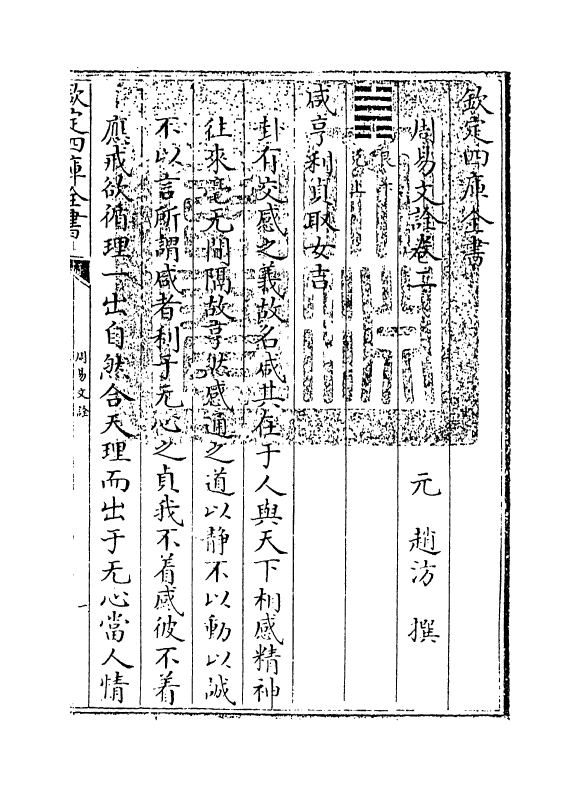 欽定四庫全書
周易文詮卷二　元　趙汸　撰
艮下兌上
咸亨利貞取女吉
卦有交感之義故名咸其在于人與天下相感精神
往來毫无間隔故亨然感通之道以静不以動以誠
不以言所謂咸者利于无心之貞我不着感彼不着
應戒欲循理一出自然合天理而出于无心當人情
欽定四庫全書
周易文詮
一